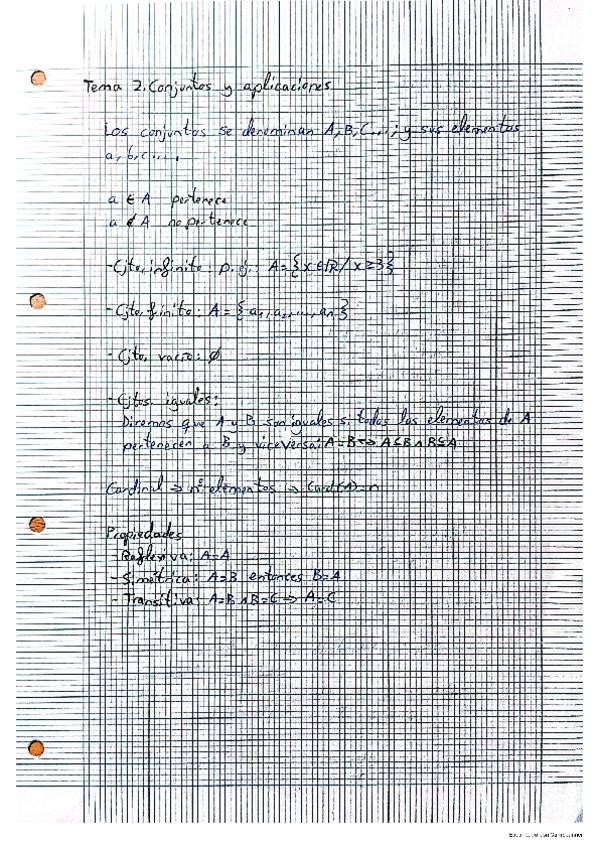 Tema 2. Conjuntos y aplicaciones
Los conjuntos se denominan A, B, C...; y sus elementos
a, b, c ....
a ∈ A pertenece
a ∉ A no pertenece
- Cjto. infinito: p. ej.: A = {x ∈ ℝ / x ≥ 3}
- Cjto. finito: A = {a₁, a₂, ..., aₙ}
- Cjto. vacío: ∅
- Cjtos. iguales:
Diremos que A y B son iguales si todos los elementos de A
pertenecen a B y viceversa: A=B ⇔ A⊆B ∧ B⊆A
Cardinal ⇒ nº elementos ⇒ Card(A)=n
Propiedades
- Reflexiva: A=A
- Simétrica: A=B entonces B=A
- Transitiva: A=B ∧ B=C ⇒ A=C